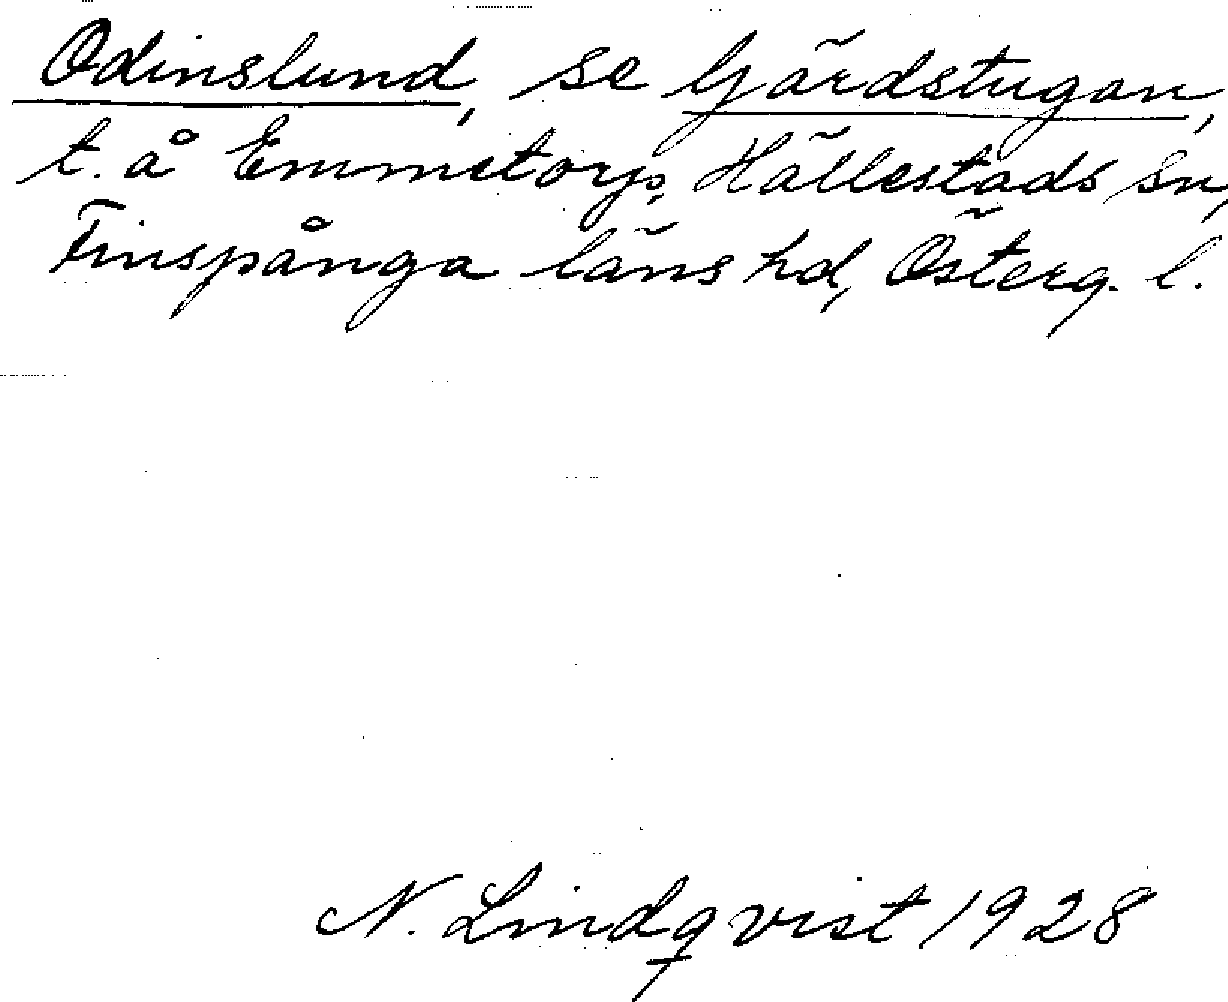 Odinslund, se Gärdstugan,
t. å Emmetorp, Hällestads sn,
Finspånga läns hd, Österg. l.
N. Lindqvist 1928